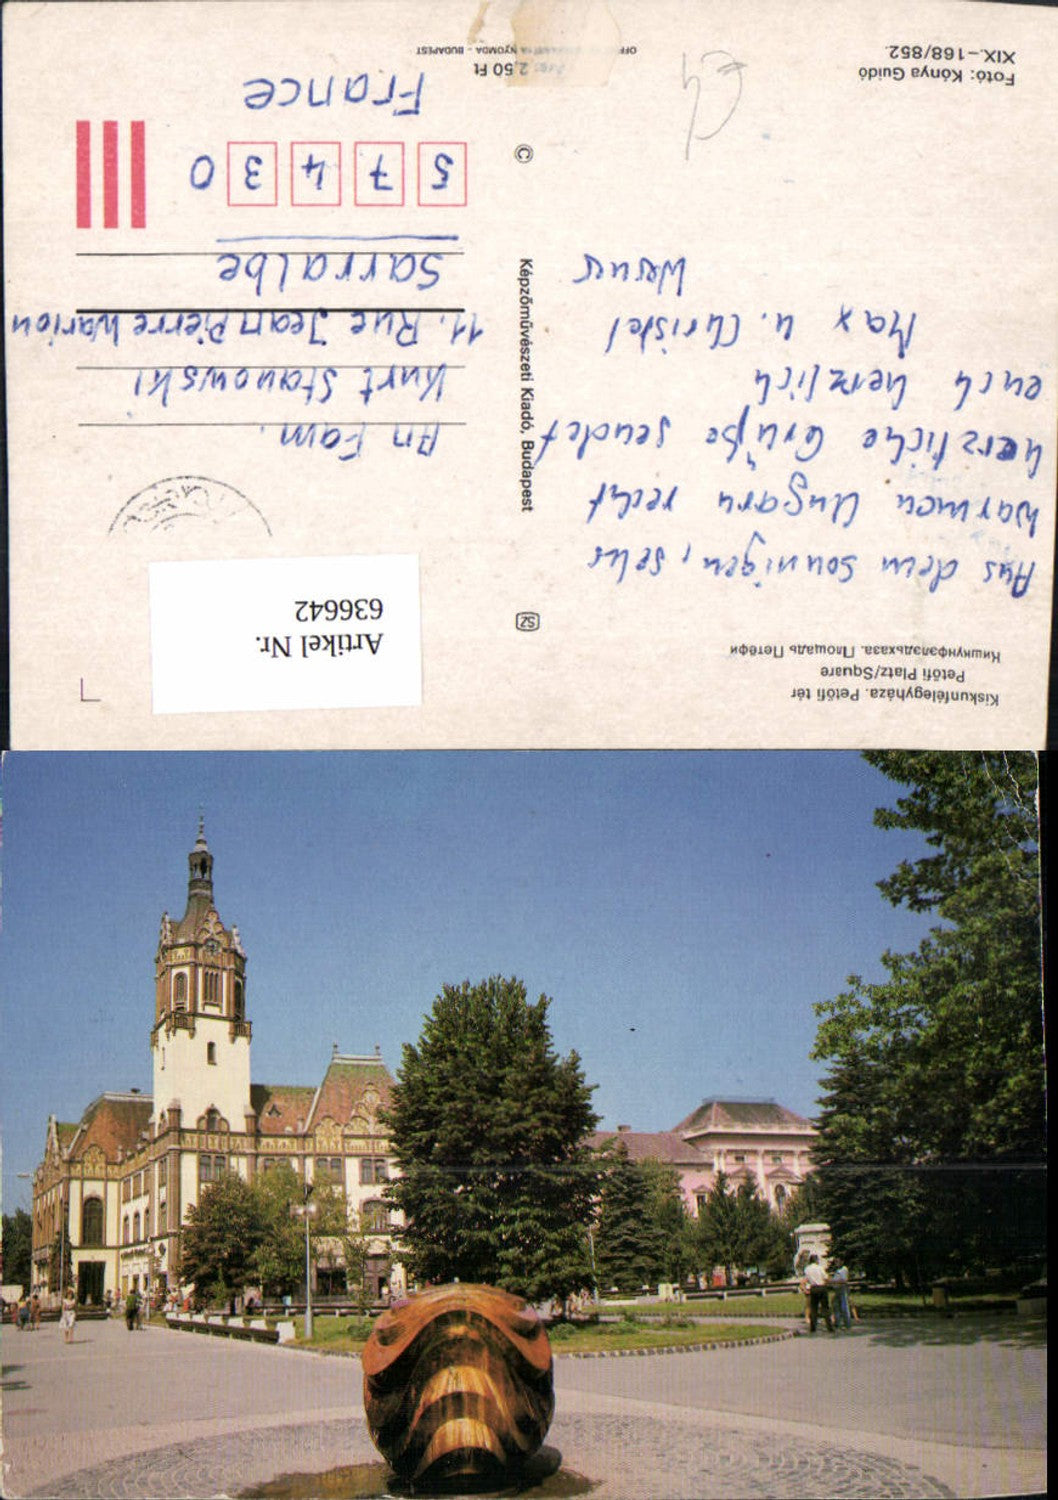 Kiskunfélegyháza. Petőfi tér
Petőfi Platz/Square
Кишкунфэлэдьхаза. Площадь Петёфи
Aus dem sonnigen, sehr
warmen Ungarn recht
herzliche Grüße sendet
euch herzlich
Max u. Christel
Werner
Fotó: Kónya Guidó
XIX.–168/852.
SZ
Képzőművészeti Kiadó, Budapest
©
Artikel Nr.
636642
An Fam.
Kurt Stanowski
11. Rue Jean Pierre Warion
Sarralbe
5 7 4 3 0
France
2,50 Ft
NYOMDA - BUDAPEST